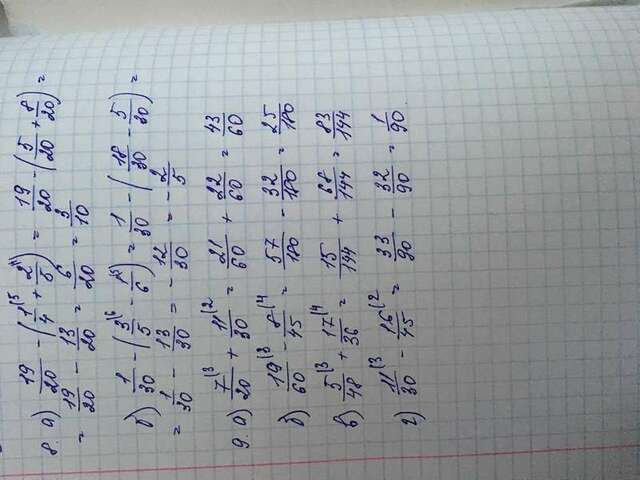 8. а) 19/20 - (1/4 (5 + 2/5 (4) = 19/20 - (5/20 + 8/20) =
= 19/20 - 13/20 = 6/20 = 3/10
б) 1/30 - (3/5 (6 - 1/6 (5) = 1/30 - (18/30 - 5/30) =
= 1/30 - 13/30 = - 12/30 = - 2/5
9. а) 7/20 (3 + 11/30 (2 = 21/60 + 22/60 = 43/60
б) 19/60 (3 - 8/45 (4 = 57/180 - 32/180 = 25/180
в) 5/48 (3 + 17/36 (4 = 15/144 + 68/144 = 83/144
г) 11/30 (3 - 16/45 (2 = 33/90 - 32/90 = 1/90